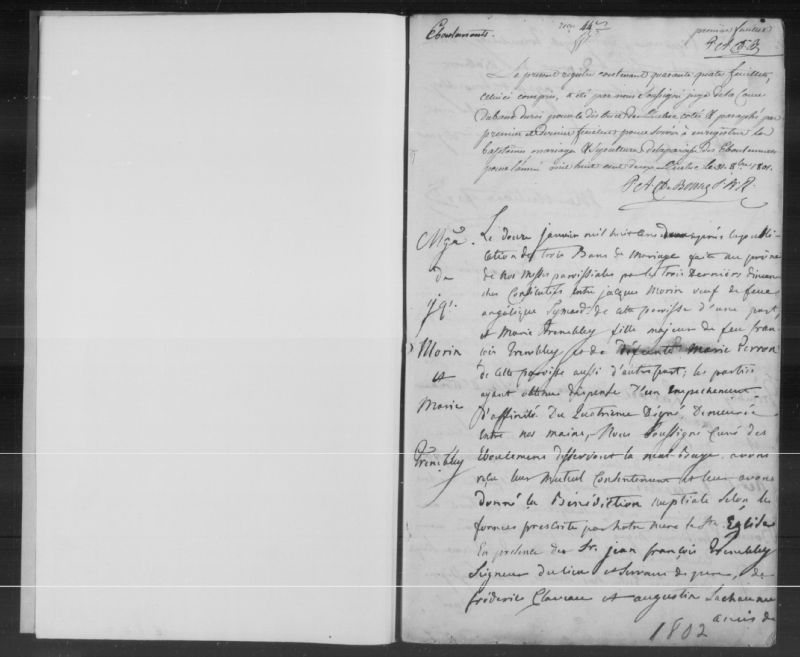 Eboulements.
premier feuillet
P. A. D. B.
Le présent registre contenant quarante quatre feuillets,
celui ci compris, a été par nous soussigné juge de la Cour
du banc du roi pour le district de Québec coté & paraphé par
premier et dernier feuillet pour servir à enregistrer les
baptêmes mariages & sépultures de la paroisse des Eboulements
pour l'année mil huit cent deux. Québec le 31. 8bre 1801.
P. A. De Bonne J. B. R.
Mge
de
jq.
Morin
et
Marie
Trembley
Le douze janvier mil huit cens deux après la publi-
cation de trois Bans de Mariage faite au prône
de nos messes paroissiales par les trois Derniers diman
ches Consécutifs entre jacques Morin veuf de feue
angélique Symard de cette paroisse d'une part,
et Marie Trembley fille majeur de feu fran
cois Trembley et de Défeunte Marie Perron
de cette paroisse aussi d'autre part; les parties
ayant obtenus dispense d'un Empechement
d'affinité Du Quatrieme Dégré Demeurée
Entre nos mains, Nous Soussigné Curé des
Eboulemens desservant la mal-baye avons
reçu leur Mutuel Consentement et leur avons
donné la Bénédiction nuptiale selon les
formes prescrite par notre mere la Ste Eglise
En présence du Sr. jean françois Trembley
Seigneur du lieu et servant de pere, de
fréderic Claveau et augustin Lachance
amis de
1802